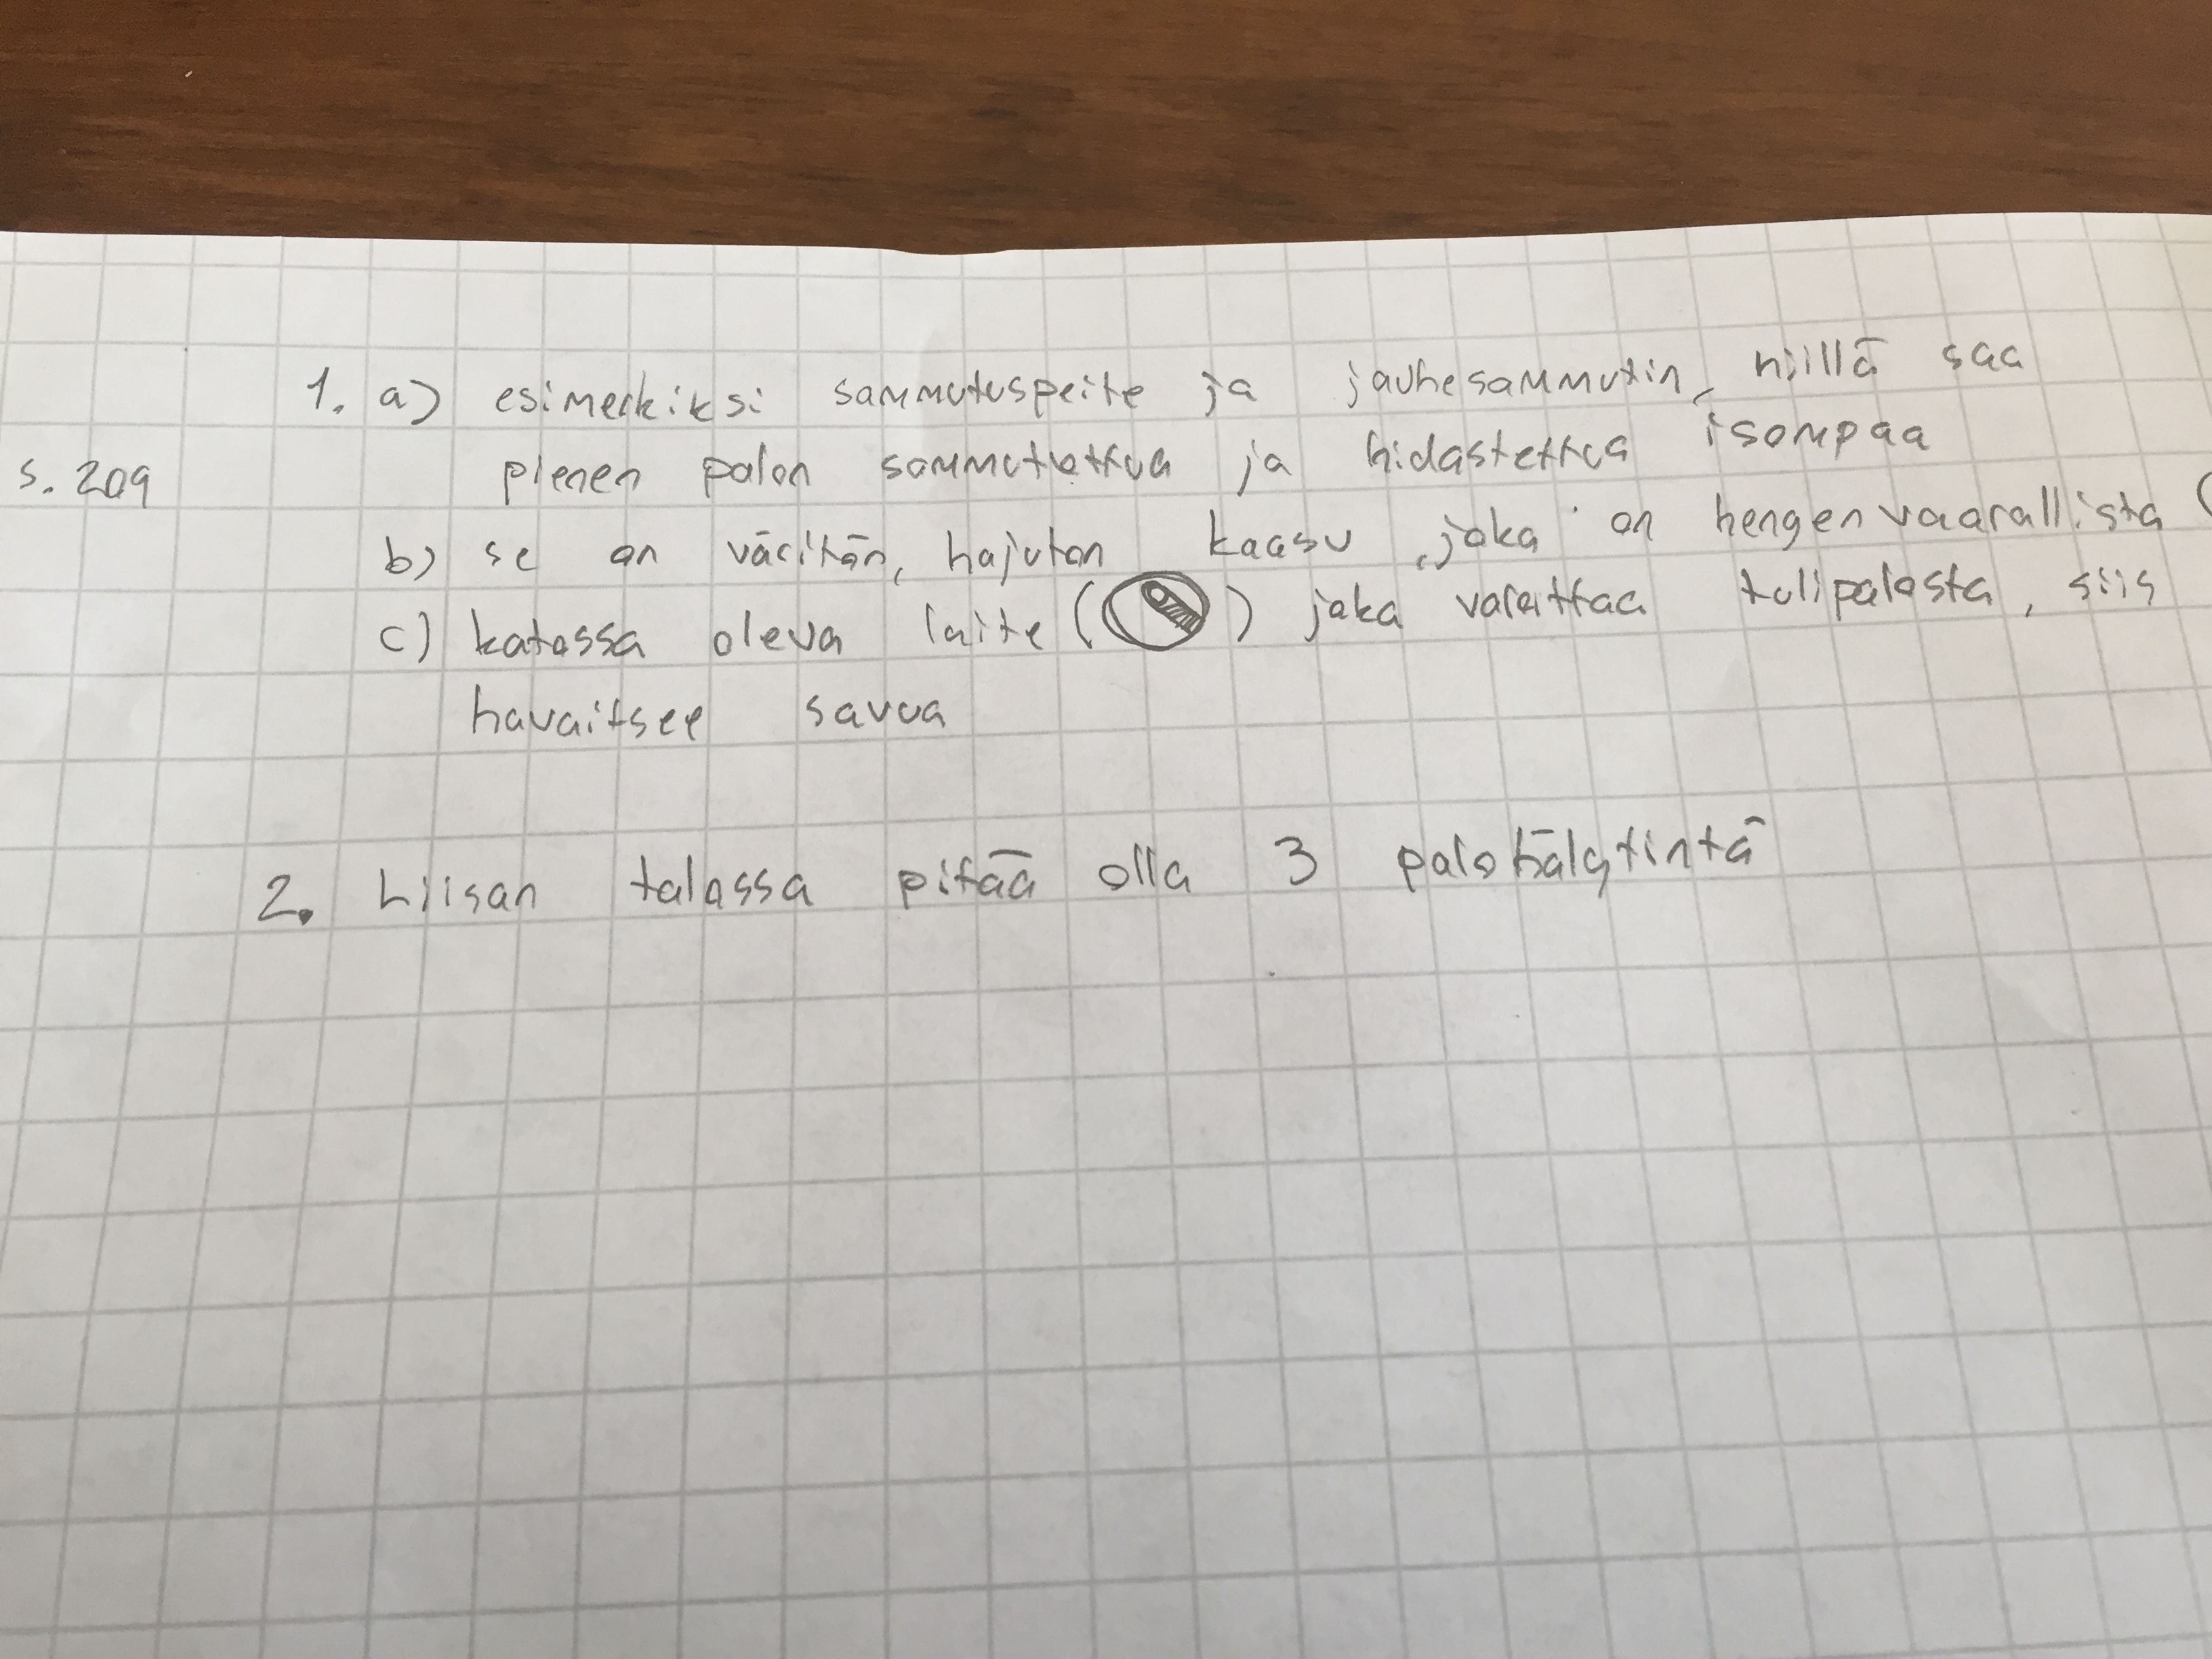 1. a) esimerkiksi sammutuspeite ja jauhesammutin, niillä saa
s. 209
pienen palon sammutettua ja hidastettua isompaa
b) se on väritön, hajuton kaasu, joka on hengenvaarallista (
c) katossa oleva laite ( ) joka varoittaa tulipalosta, siis
havaitsee savua
2. Liisan talossa pitää olla 3 palohälytintä